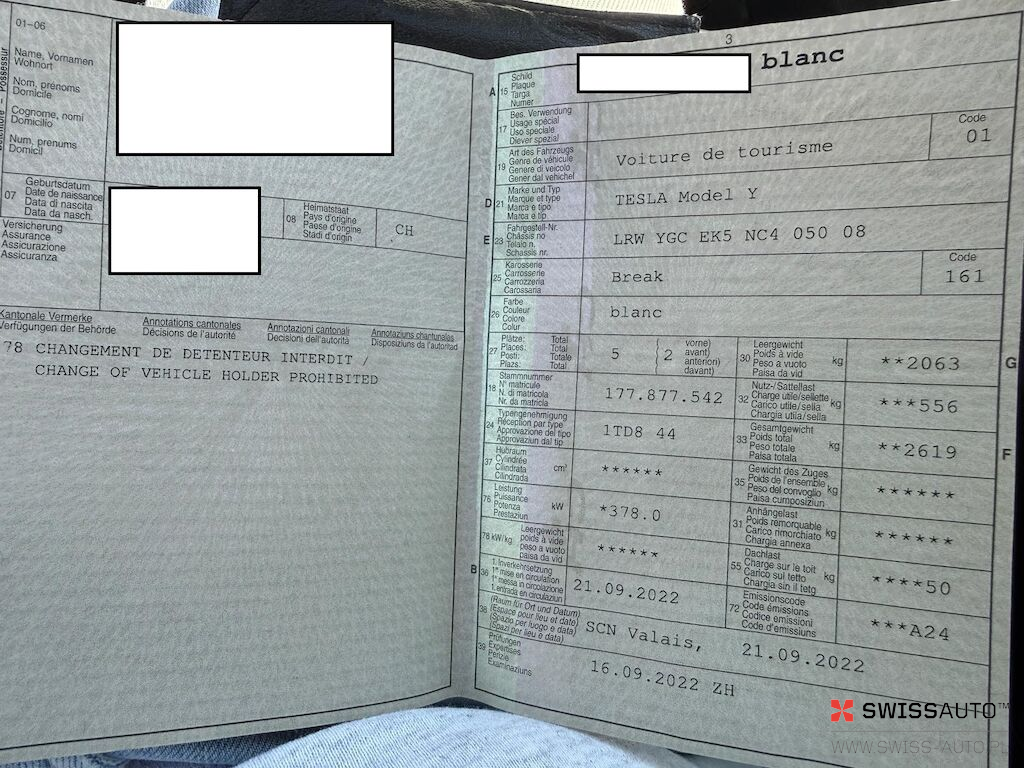 01-06
Name, Vornamen
Wohnort
Nom, prénoms
Domicile
Cognome, nomi
Domicilio
Num, prenums
Domicil
07
Geburtsdatum
Date de naissance
Data di nascita
Data da nasch.
08
Heimatstaat
Pays d'origine
Paese d'origine
Stadi d'origin
CH
Versicherung
Assurance
Assicurazione
Assicuranza
Kantonale Vermerke
Verfügungen der Behörde
Annotations cantonales
Décisions de l'autorité
Annotazioni cantonali
Decisioni dell'autorità
Annotaziuns chantunalas
Disposiziuns da l'autoritad
78 CHANGEMENT DE DETENTEUR INTERDIT /
CHANGE OF VEHICLE HOLDER PROHIBITED
3
A 15
Schild
Plaque
Targa
Numer
blanc
17
Bes. Verwendung
Usage spécial
Uso speciale
Diever spezial
19
Art des Fahrzeugs
Genre de véhicule
Genere di veicolo
Gener dal vehichel
Voiture de tourisme
Code
01
D 21
Marke und Typ
Marque et type
Marca e tipo
Marca e tip
TESLA Model Y
E 23
Fahrgestell-Nr.
Châssis no
Telaio n.
Schassis nr.
LRW YGC EK5 NC4 050 08
25
Karosserie
Carrosserie
Carrozzeria
Carossaria
Break
Code
161
26
Farbe
Couleur
Colore
Colur
blanc
27
Plätze: Total
Places: Total
Posti: Totale
Plazs: Total
5
(2
vorne)
avant)
anteriori)
davant)
30
Leergewicht
Poids à vide
Peso a vuoto
Paisa da vid
kg
**2063
G
18
Stammnummer
N° matricule
N. di matricola
Nr. da matricla
177.877.542
32
Nutz-/Sattellast
Charge utile/sellette
Carico utile/sella
Chargia utila/sella
kg
***556
24
Typengenehmigung
Réception par type
Approvazione del tipo
Approvaziun dal tip
1TD8 44
33
Gesamtgewicht
Poids total
Peso totale
Paisa totala
kg
**2619
F
37
Hubraum
Cylindrée
Cilindrata
Cilindrada
cm³
******
35
Gewicht des Zuges
Poids de l'ensemble
Peso del convoglio
Paisa cumposiziun
kg
******
76
Leistung
Puissance
Potenza
Prestaziun
kW
*378.0
31
Anhängelast
Poids remorquable
Carico rimorchiato
Chargia annexa
kg
******
78 kW/kg
Leergewicht
poids à vide
peso a vuoto
paisa da vid
******
55
Dachlast
Charge sur le toit
Carico sul tetto
Chargia sin il tetg
kg
****50
B 36
1. Inverkehrsetzung
1re mise en circulation
1a messa in circolazione
1. entrada en circulaziun
21.09.2022
72
Emissionscode
Code émissions
Codice emissioni
Code d'emissiuns
***A24
38
(Raum für Ort und Datum)
(Espace pour lieu et date)
(Spazio per luogo e data)
(Spazi per lieu e data)
SCN Valais, 21.09.2022
39
Prüfungen
Expertises
Perizie
Examinaziuns
16.09.2022 ZH
SWISSAUTO™
WWW.SWISS-AUTO.PL